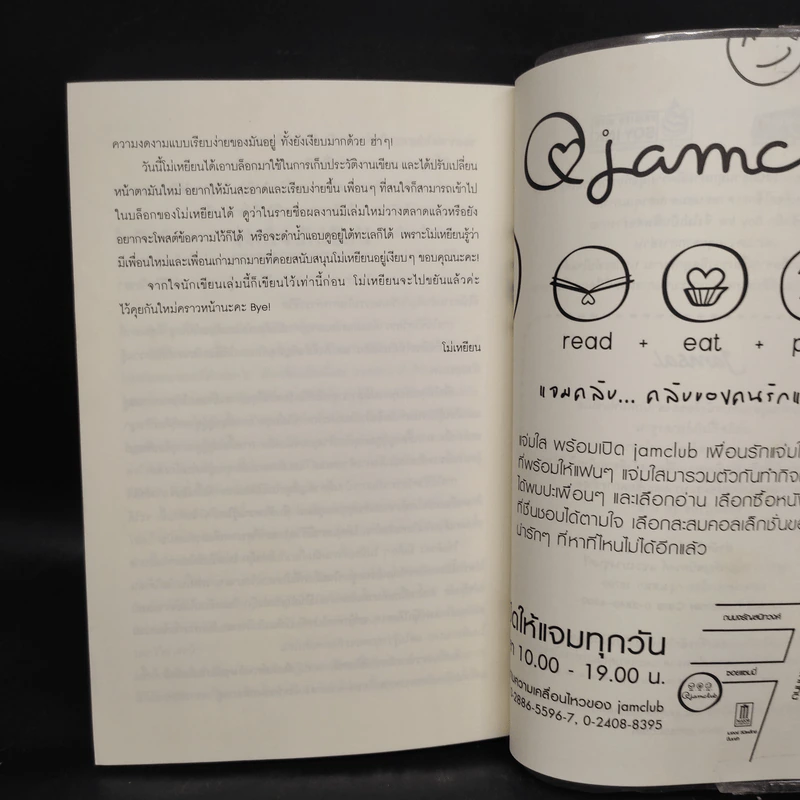 ความงดงามแบบเรียบง่ายของมันอยู่ ทั้งยังเงียบมากด้วย ฮ่าๆ!
วันนี้โม่เหยียนได้เอาบล็อกมาใช้ในการเก็บประวัติงานเขียน และได้ปรับเปลี่ยน
หน้าตามันใหม่ อยากให้มันสะอาดและเรียบง่ายขึ้น เพื่อนๆ ที่สนใจก็สามารถเข้าไป
ในบล็อกของโม่เหยียนได้ ดูว่าในรายชื่อผลงานมีเล่มใหม่วางตลาดแล้วหรือยัง
อยากจะโพสต์ข้อความไว้ก็ได้ หรือจะดำน้ำแอบดูอยู่ใต้ทะเลก็ได้ เพราะโม่เหยียนรู้ว่า
มีเพื่อนใหม่และเพื่อนเก่ามากมายที่คอยสนับสนุนโม่เหยียนอยู่เงียบๆ ขอบคุณนะคะ!
จากใจนักเขียนเล่มนี้ก็เขียนไว้เท่านี้ก่อน โม่เหยียนจะไปขยันแล้วค่ะ
ไว้คุยกันใหม่คราวหน้านะคะ Bye!
โม่เหยียน
jamc
read + eat + p
แจมคลับ... คลับของคนรักแ
แจ่มใส พร้อมเปิด jamclub เพื่อนรักแจ่มใ
ที่พร้อมให้แฟนๆ แจ่มใสมารวมตัวกันทำกิจ
ได้พบปะเพื่อนๆ และเลือกอ่าน เลือกซื้อหนัง
ที่ชื่นชอบได้ตามใจ เลือกสะสมคอลเล็กชั่นขอ
น่ารักๆ ที่หาที่ไหนไม่ได้อีกแล้ว
ให้แจมทุกวัน
10.00 - 19.00 น.
ความเคลื่อนไหวของ jamclub
0-2886-5596-7, 0-2408-8395
ถนนจรัญสนิทวงศ์
jamclub